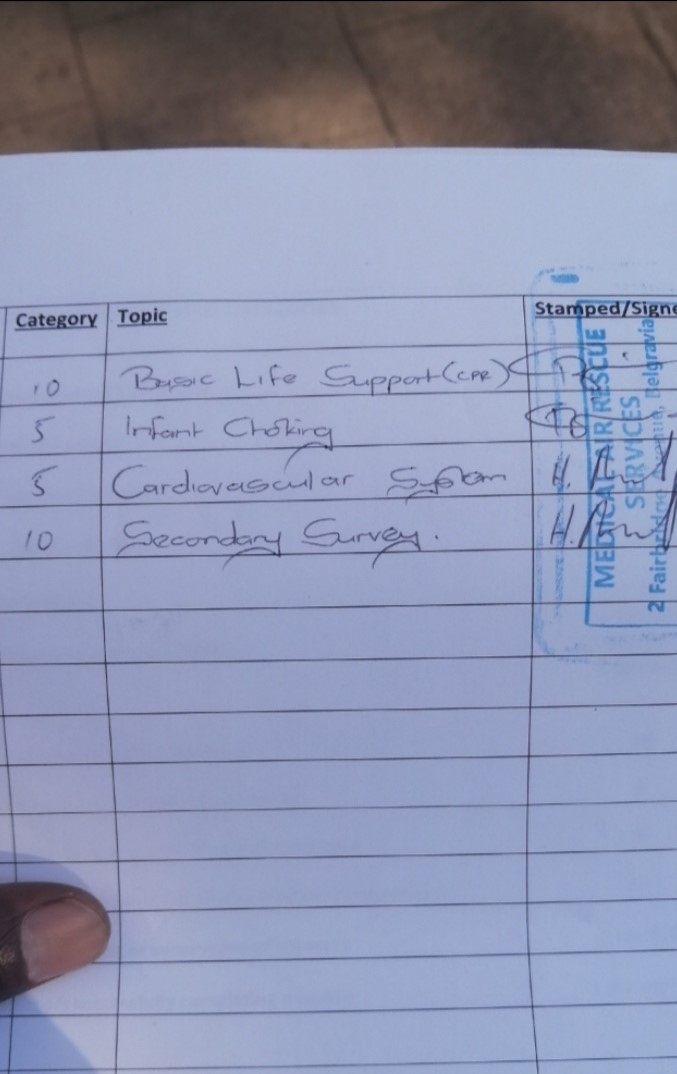 Category Topic Stamped/Signe
10 Basic Life Support (CPR)
5 Infant Choking
5 Cardiovascular System
10 Secondary Survey.
MEDICAL AIR RESCUE
SERVICES
2 Fairbridge Avenue, Belgravia